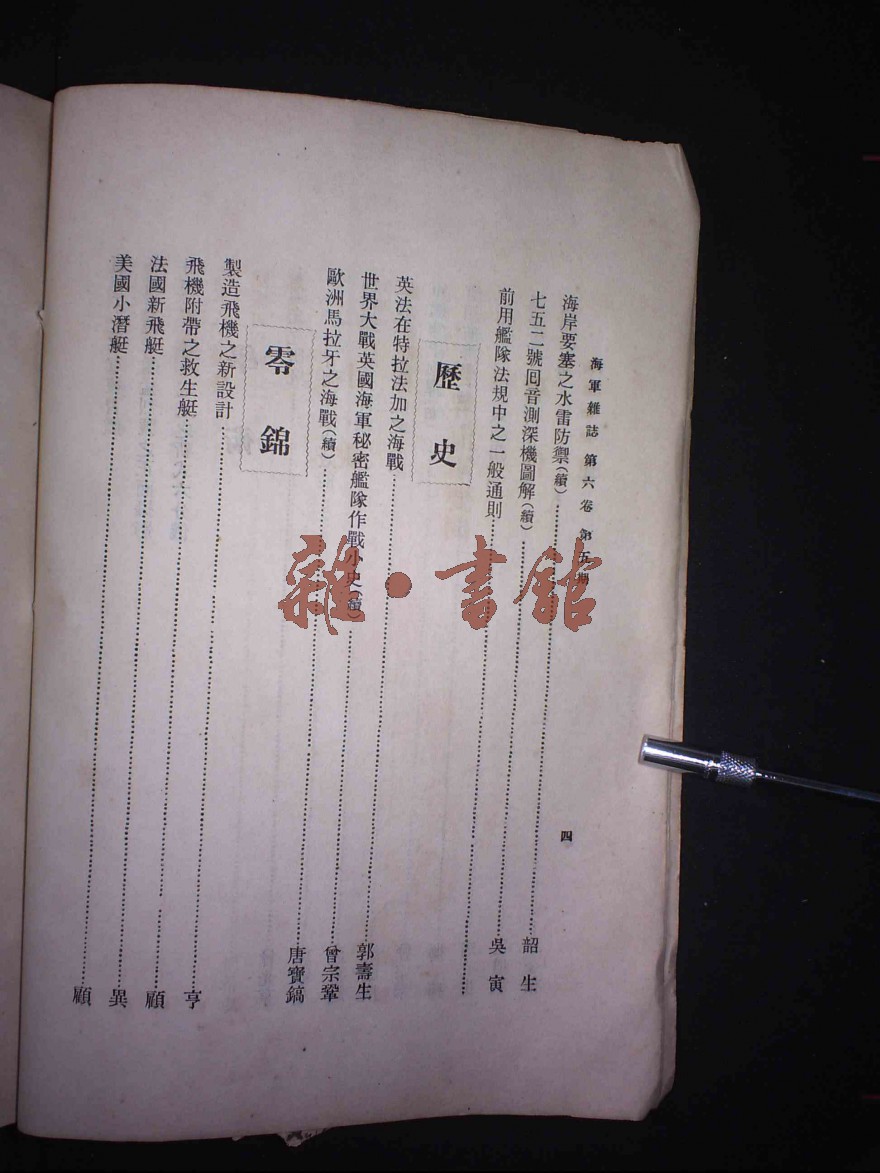 海軍雜誌 第六卷 第五期 四
海岸要塞之水雷防禦(續)……韶生
七五二號囘音測深機圖解(續)……吳寅
前用艦隊法規中之一般通則……
歷史
英法在特拉法加之海戰……郭壽生
世界大戰英國海軍秘密艦隊作戰小史(續)……曾宗鞏
歐洲馬拉牙之海戰(續)……唐寶鎬
零錦
製造飛機之新設計……亨
飛機附帶之救生艇……顧
法國新飛艇……異
美國小潛艇……顧
雜·書館